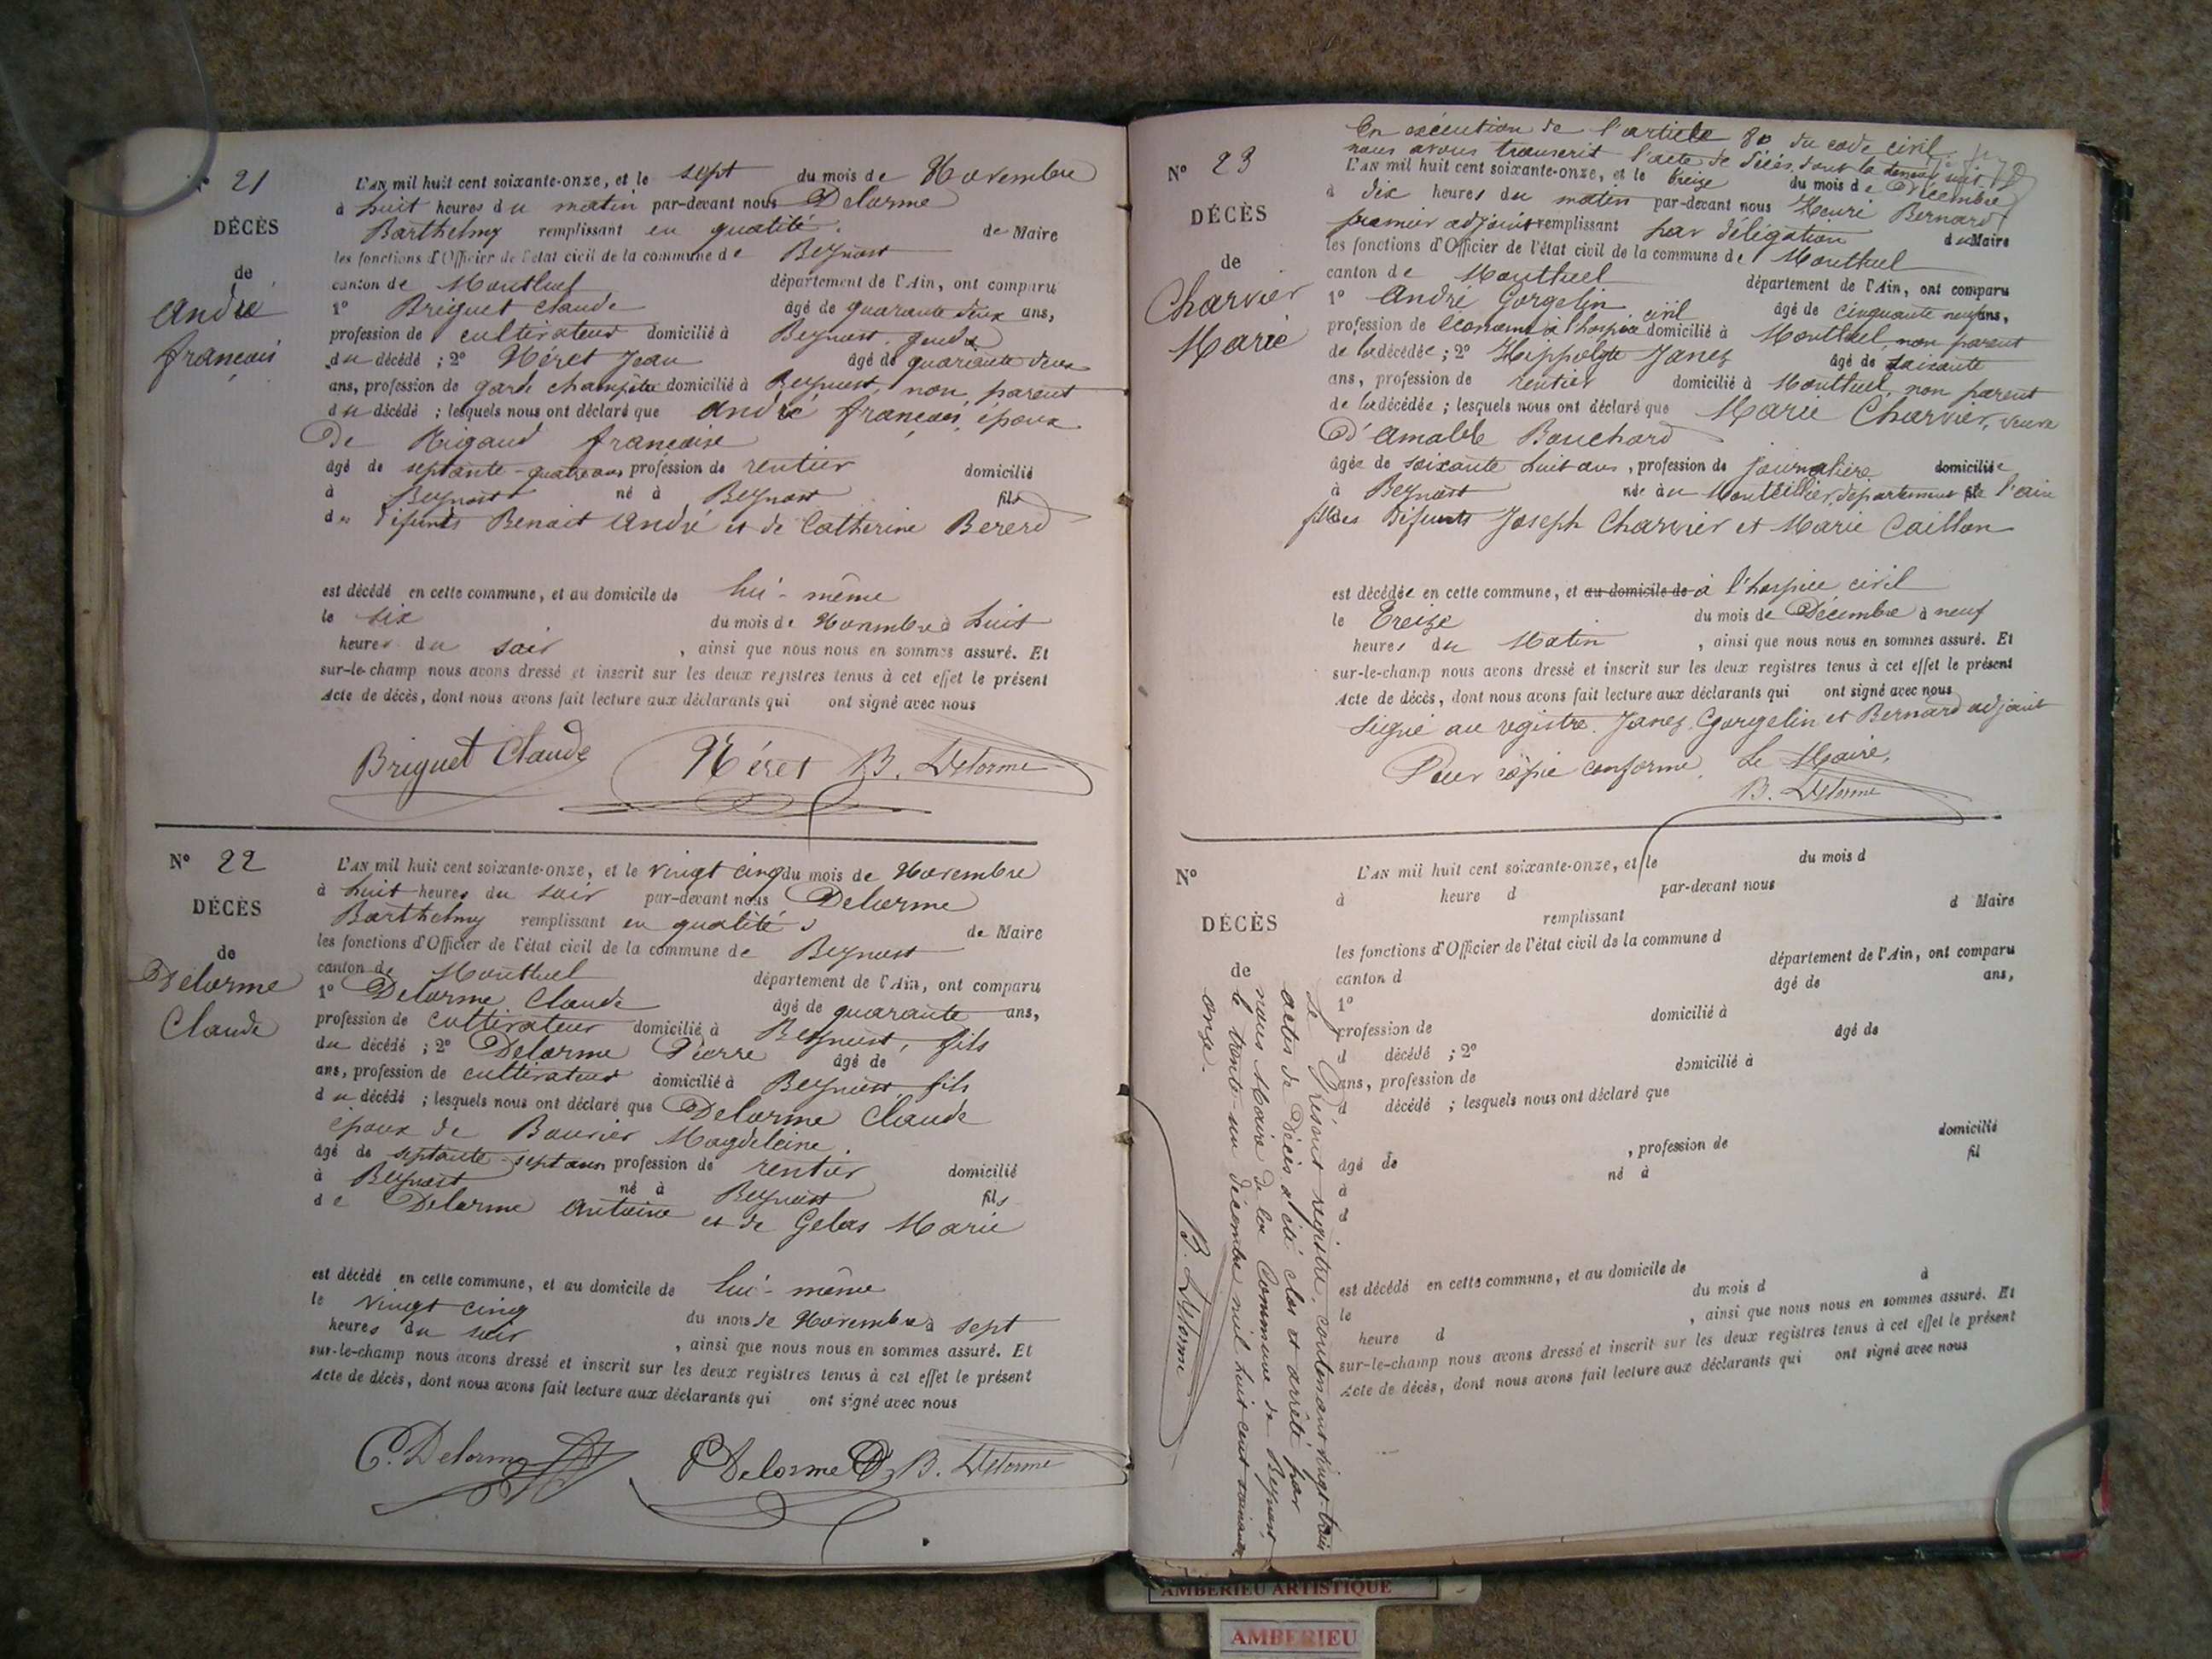 N° 21
DÉCÈS
de
André
françois
L'AN mil huit cent soixante-onze, et le sept du mois de Novembre
à huit heures du matin par-devant nous Delorme
Barthelmy remplissant en qualité de Maire
les fonctions d'Officier de l'état civil de la commune de Beynost
canton de Montluel département de l'Ain, ont comparu
1° Briguet Claude âgé de quarante deux ans,
profession de cultivateur domicilié à Beynost, gendre
du décédé ; 2° Néret Jean âgé de quarante deux
ans, profession de garde champêtre domicilié à Beynost, non parent
du décédé ; lesquels nous ont déclaré que André françois, époux
De Rigaud françoise
âgé de septante-quatre ans profession de rentier domicilié
à Beynost né à Beynost fils
des défunts Benoit André et de Catherine Bererd
est décédé en cette commune, et au domicile de lui-même
le six du mois de Novembre à huit
heures du soir , ainsi que nous nous en sommes assuré. Et
sur-le-champ nous avons dressé et inscrit sur les deux registres tenus à cet effet le présent
Acte de décès, dont nous avons fait lecture aux déclarants qui ont signé avec nous
Briguet Claude Néret B. Delorme
N° 22
DÉCÈS
de
Delorme
Claude
L'AN mil huit cent soixante-onze, et le vingt cinq du mois de Novembre
à huit heures du soir par-devant nous Delorme
Barthelmy remplissant en qualité de Maire
les fonctions d'Officier de l'état civil de la commune de Beynost
canton de Montluel département de l'Ain, ont comparu
1° Delorme Claude âgé de quarante ans,
profession de cultivateur domicilié à Beynost, fils
du décédé ; 2° Delorme Pierre âgé de
ans, profession de cultivateur domicilié à Beynost fils
du décédé ; lesquels nous ont déclaré que Delorme Claude
époux de Bouvier Magdeleine
âgé de septante-sept ans profession de rentier domicilié
à Beynost né à Beynost fils
de Delorme Antoine et de Gelas Marie
est décédé en cette commune, et au domicile de lui-même
le vingt cinq du mois de Novembre à sept
heures du soir , ainsi que nous nous en sommes assuré. Et
sur-le-champ nous avons dressé et inscrit sur les deux registres tenus à cet effet le présent
Acte de décès, dont nous avons fait lecture aux déclarants qui ont signé avec nous
C. Delorme P Delorme B. Delorme
N° 23
DÉCÈS
de
Charvier
Marie
En exécution de l'article 80 du code civil
nous avons transcrit l'acte de décès dont la teneur suit
L'AN mil huit cent soixante-onze, et le treize du mois de Décembre
à dix heures du matin par-devant nous Henri Bernard
premier adjoint remplissant par délégation du Maire
les fonctions d'Officier de l'état civil de la commune de Montluel
canton de Montluel département de l'Ain, ont comparu
1° André Gorgelin âgé de cinquante neuf ans,
profession de économe à l'hospice civil domicilié à Montluel, non parent
de la décédée ; 2° Hippolyte Janez âgé de soixante
ans, profession de rentier domicilié à Montluel, non parent
de la décédée ; lesquels nous ont déclaré que Marie Charvier, veuve
D'Amable Bouchard
âgée de soixante huit ans, profession de journalière domiciliée
à Beynost née au Montellier, département de l'ain
fille des défunts Joseph Charvier et Marie Caillon
est décédée en cette commune, et au domicile de à l'hospice civil
le Treize du mois de Décembre à neuf
heures du Matin , ainsi que nous nous en sommes assuré. Et
sur-le-champ nous avons dressé et inscrit sur les deux registres tenus à cet effet le présent
Acte de décès, dont nous avons fait lecture aux déclarants qui ont signé avec nous
Signé au registre. Janez, Gorgelin et Bernard adjoint
Pour copie conforme. Le Maire,
B. Delorme
N°
DÉCÈS
de
L'AN mil huit cent soixante-onze, et le du mois d
à heure d par-devant nous
remplissant d Maire
les fonctions d'Officier de l'état civil de la commune d
canton d département de l'Ain, ont comparu
1° âgé de ans,
profession de domicilié à
d décédé ; 2° âgé de
ans, profession de domicilié à
d décédé ; lesquels nous ont déclaré que
âgé de , profession de domicilié
à né à fil
d
est décédé en cette commune, et au domicile de
le du mois d à
heure d , ainsi que nous nous en sommes assuré. Et
sur-le-champ nous avons dressé et inscrit sur les deux registres tenus à cet effet le présent
Acte de décès, dont nous avons fait lecture aux déclarants qui ont signé avec nous
Le Présent registre, contenant vingt-trois
actes de Décès a été clos et arrêté par
nous Maire de la Commune de Beynost,
le trente-un décembre mil huit cent soixante
onze.
B. Delorme
AMBERIEU ARTISTIQUE
AMBERIEU